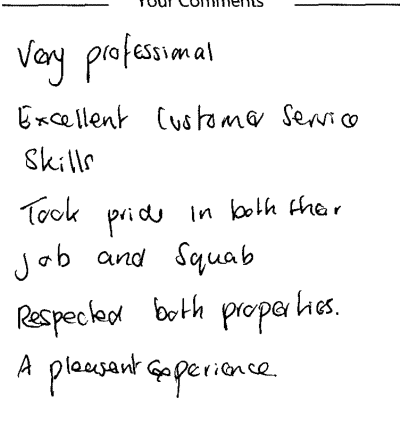 Your Comments
Very professional
Excellent Customer Service
Skills
Took pride in both their
job and Squab
Respected both properties.
A pleasant experience.